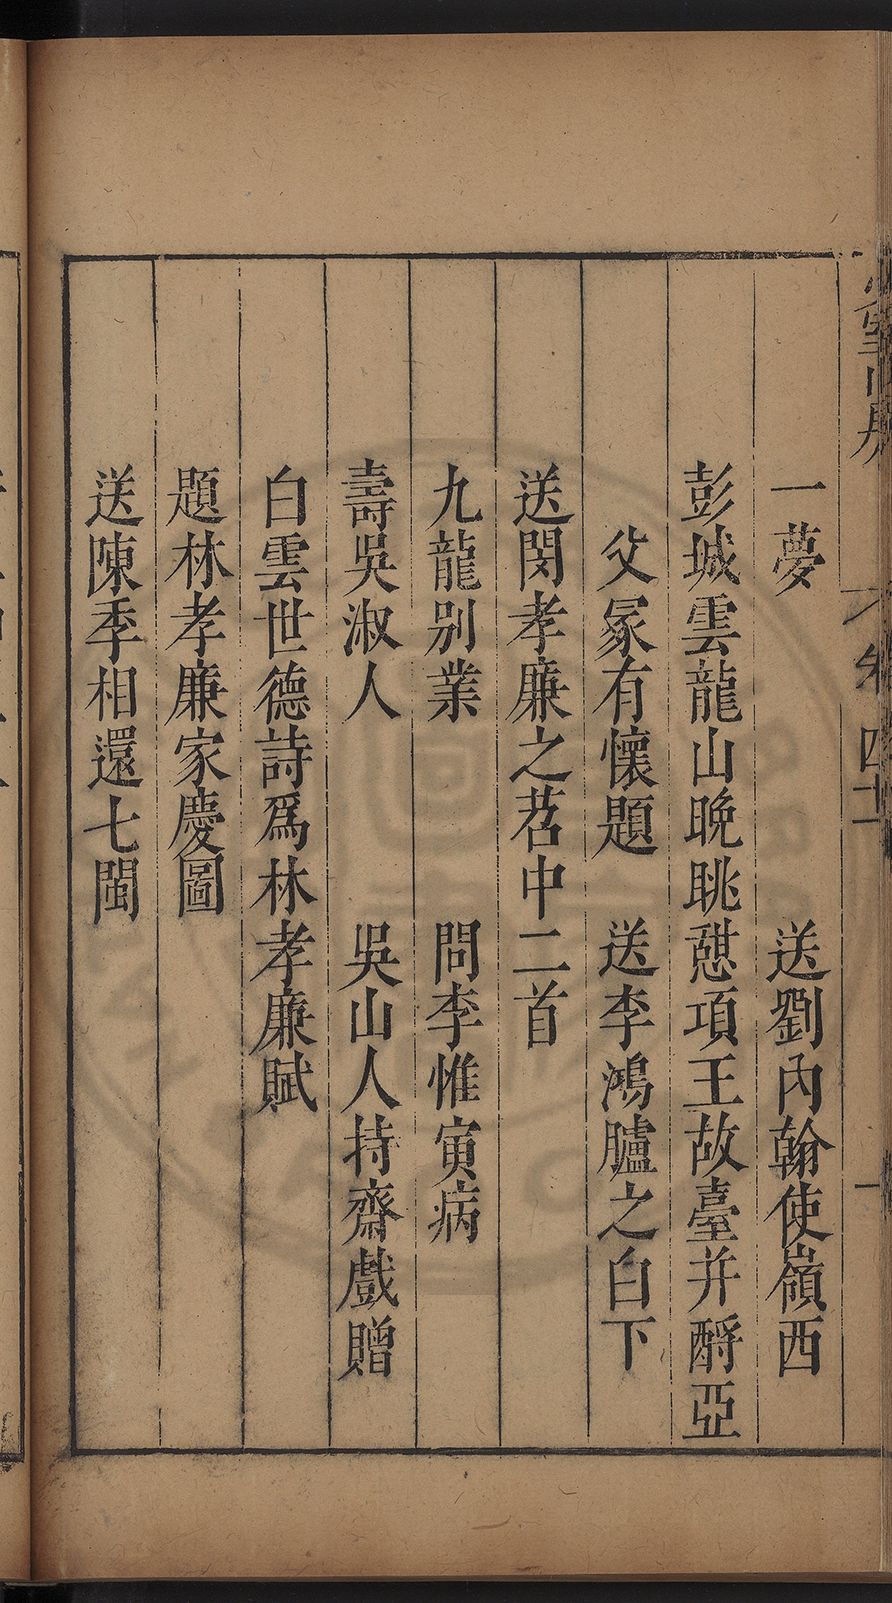 一夢　送劉內翰使嶺西
彭城雲龍山晚眺憇項王故臺并酹亞
父冡有懷題　送李鴻臚之白下
送閔孝廉之苕中二首
九龍别業　問李惟寅病
壽吳淑人　吳山人持齋戲贈
白雲世德詩爲林孝廉賦
題林孝廉家慶圖
送陳季相還七閩